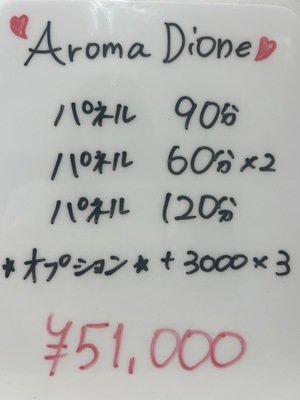 Aroma Dione
パネル 90分
パネル 60分×2
パネル 120分
*オプション* +3000×3
¥51,000